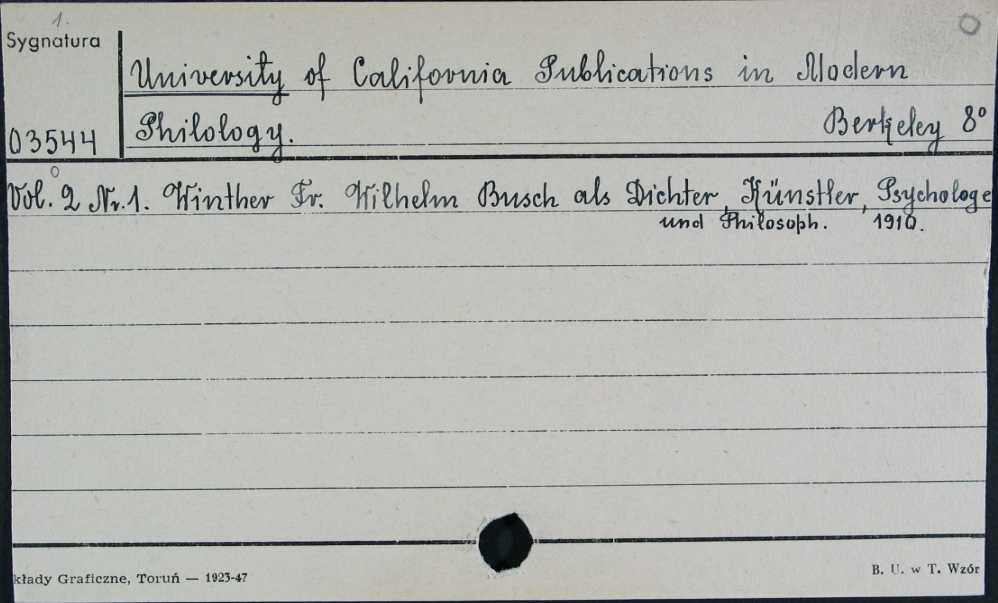 1.
Sygnatura
University of California Publications in Modern
03544 Philology. Berkeley 8°
Vol. 2 Nr. 1. Winther Fr. Wilhelm Busch als Dichter, Künstler, Psychologe
und Philosoph. 1910.
kłady Graficzne, Toruń — 1923-47
B. U. w T. Wzór